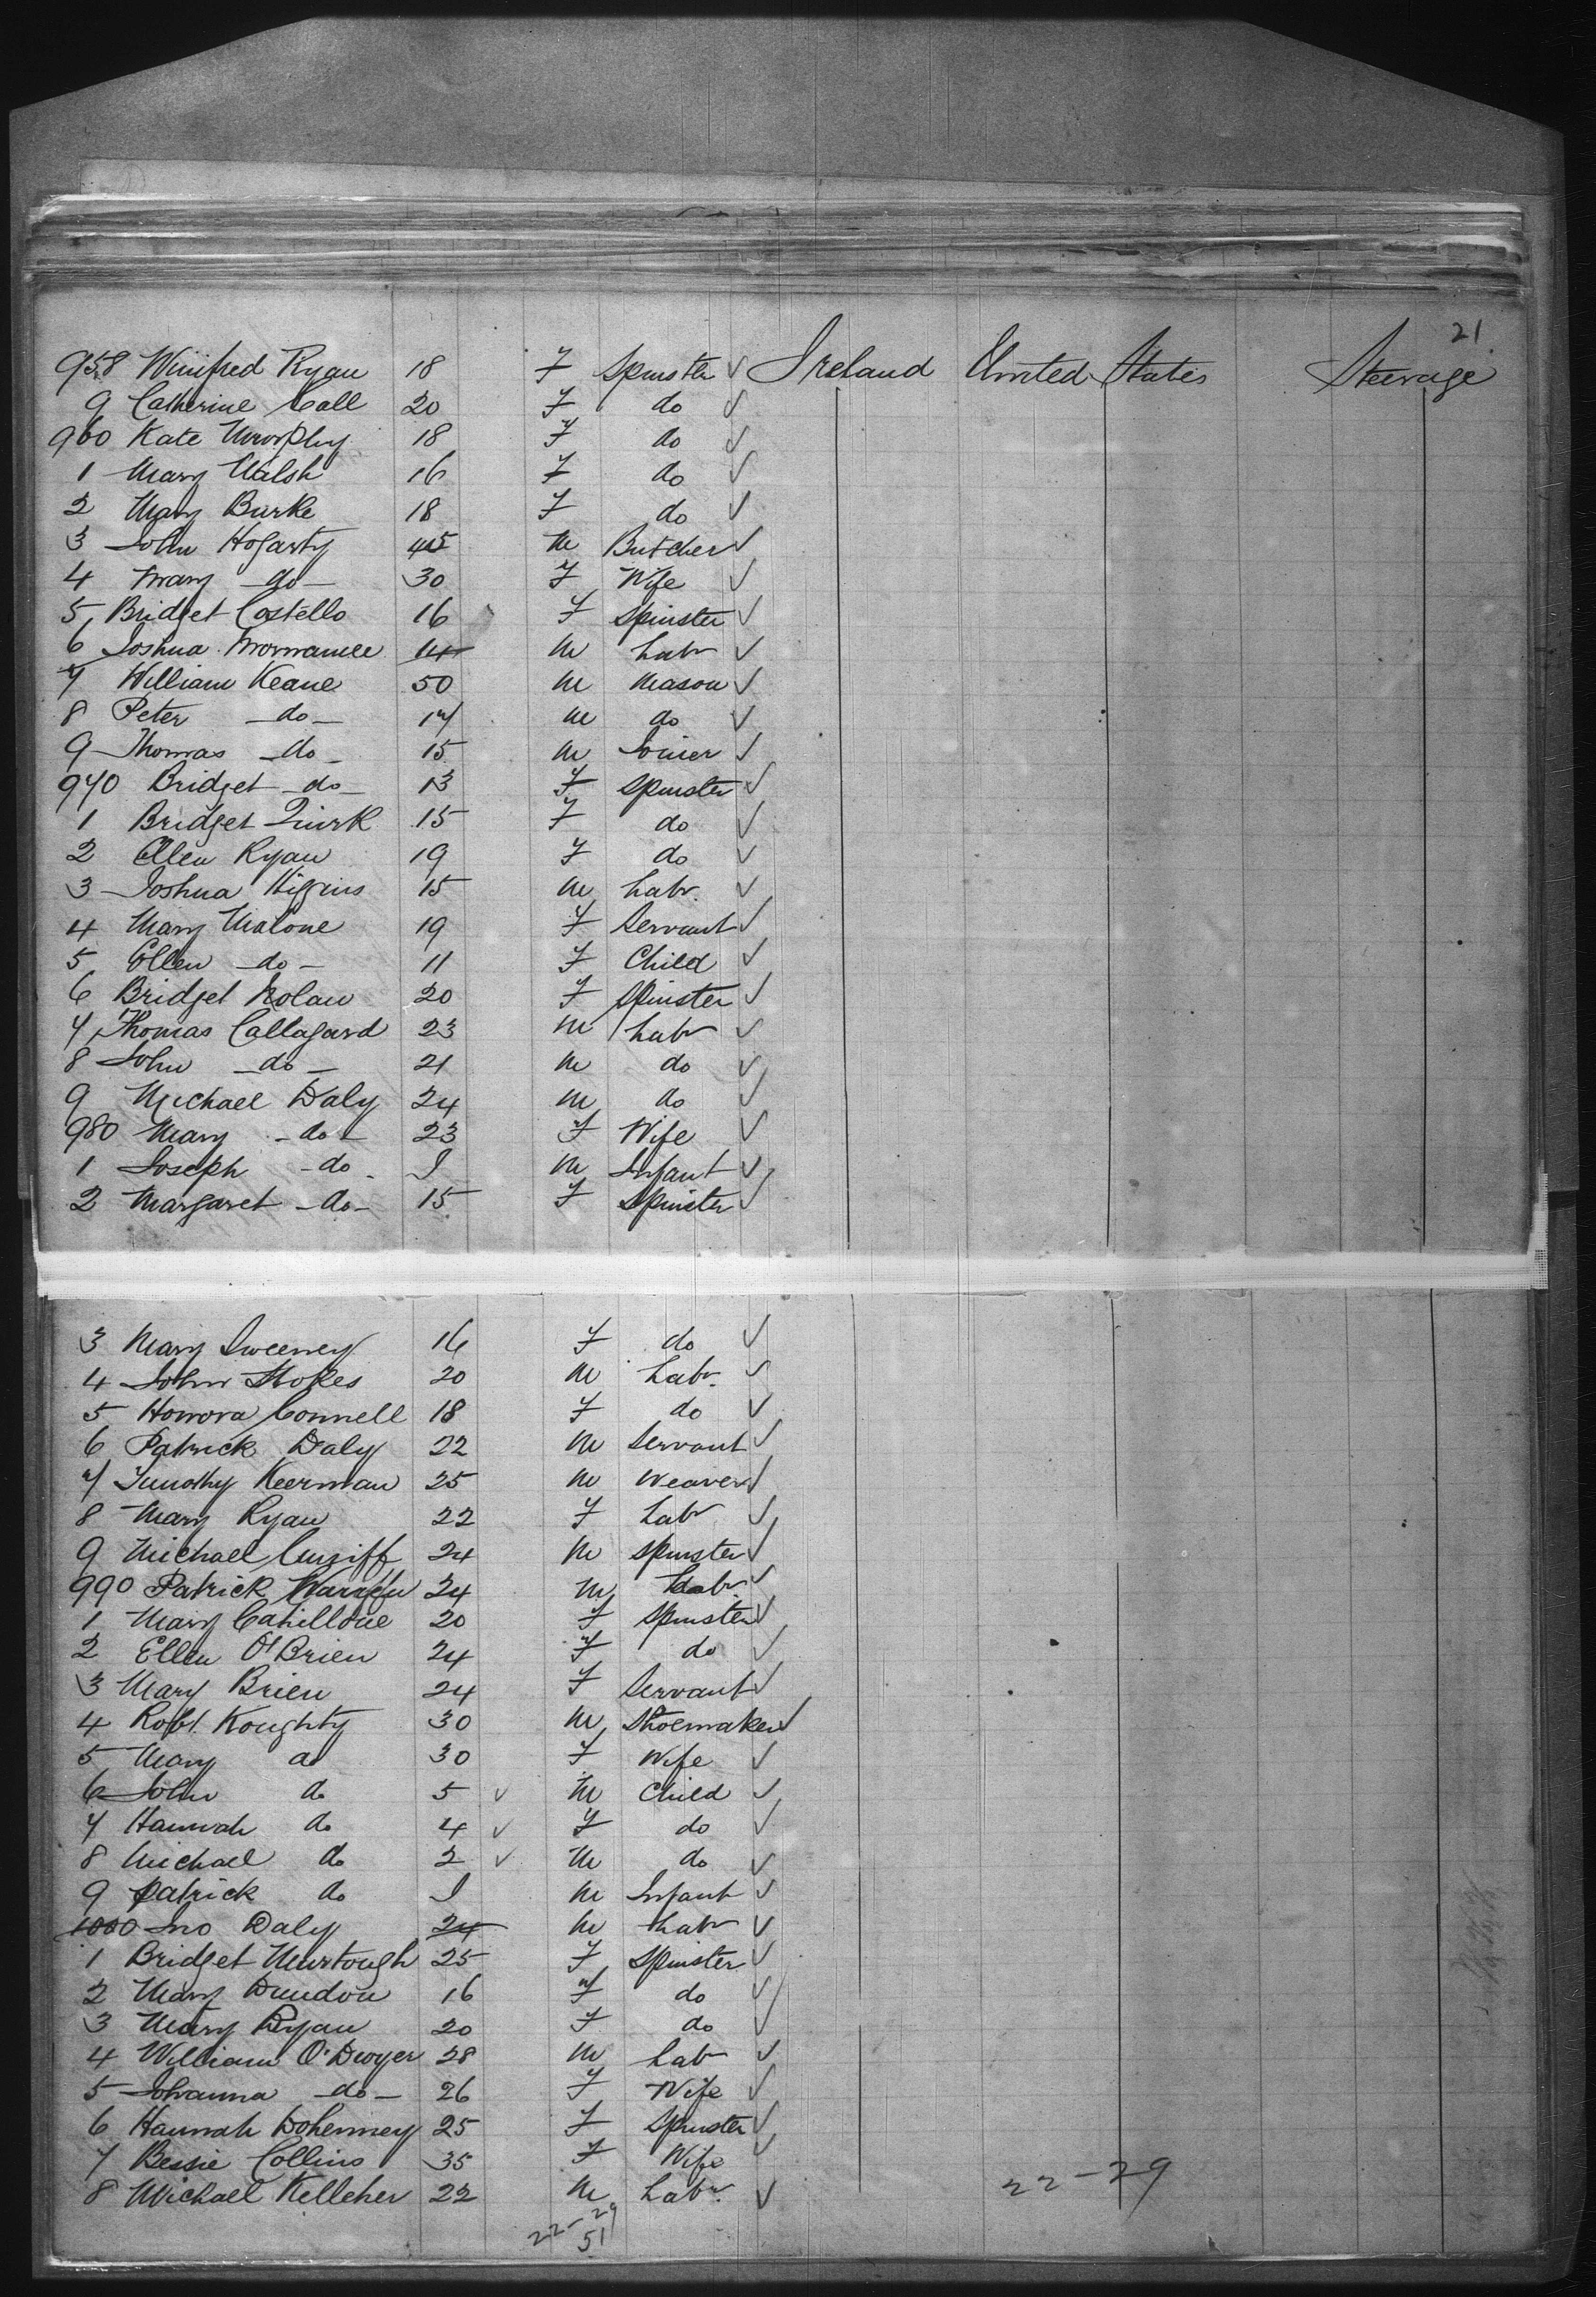 21
958 Winifred Ryan 18 F Spinster Ireland United States Steerage
9 Catherine Call 20 F do
960 Kate Murphy 18 F do
1 Mary Walsh 16 F do
2 Mary Burke 18 F do
3 John Hogarty 45 M Butcher
4 Mary -do- 30 F Wife
5 Bridget Costello 16 F Spinster
6 Joshua M Labr
7 William Keane 50 M Mason
8 Peter -do- 17 M do
9 Thomas -do- 15 M Joiner
970 Bridget -do- 13 F Spinster
1 Bridget Quirk 15 F do
2 Ellen Ryan 19 F do
3 Joshua Higgins 15 M Labr.
4 Mary Malone 19 F Servant
5 Ellen -do- 11 F Child
6 Bridget Nolan 20 F Spinster
7 Thomas Callagard 23 M Labr
8 John -do- 21 M do
9 Michael Daly 24 M do
980 Mary -do- 23 F Wife
1 Joseph -do- I M Infant
2 Margaret -do- 15 F Spinster
3 Mary Sweeney 16 F do
4 John Stokes 20 M Labr.
5 Honora Connell 18 F do
6 Patrick Daly 22 M Servant
7 Timothy Keernan 25 M Weaver
8 Mary Ryan 22 F Labr
9 Michael 24 M Spinster
990 Patrick 24 M Labr.
1 Mary 20 F Spinster
2 Ellen O'Brien 24 F do
3 Mary Brien 24 F Servant
4 Robt. Koughty 30 M Shoemaker
5 Mary do 30 F Wife
6 John do 5 M Child
7 Hannah do 4 F do
8 Michael do 2 M do
9 Patrick do I M Infant
1000 Jno Daly 24 M Labr
1 Bridget Murtough 25 F Spinster
2 Mary Dundon 16 F do
3 Mary Ryan 20 F do
4 William O'Dwyer 28 M Labr
5 Johanna -do- 26 F Wife
6 Hannah Dohenney 25 F Spinster
7 Bessie Collins 35 F Wife
8 Michael Kelleher 22 M Labr.
22-29
22-29
51